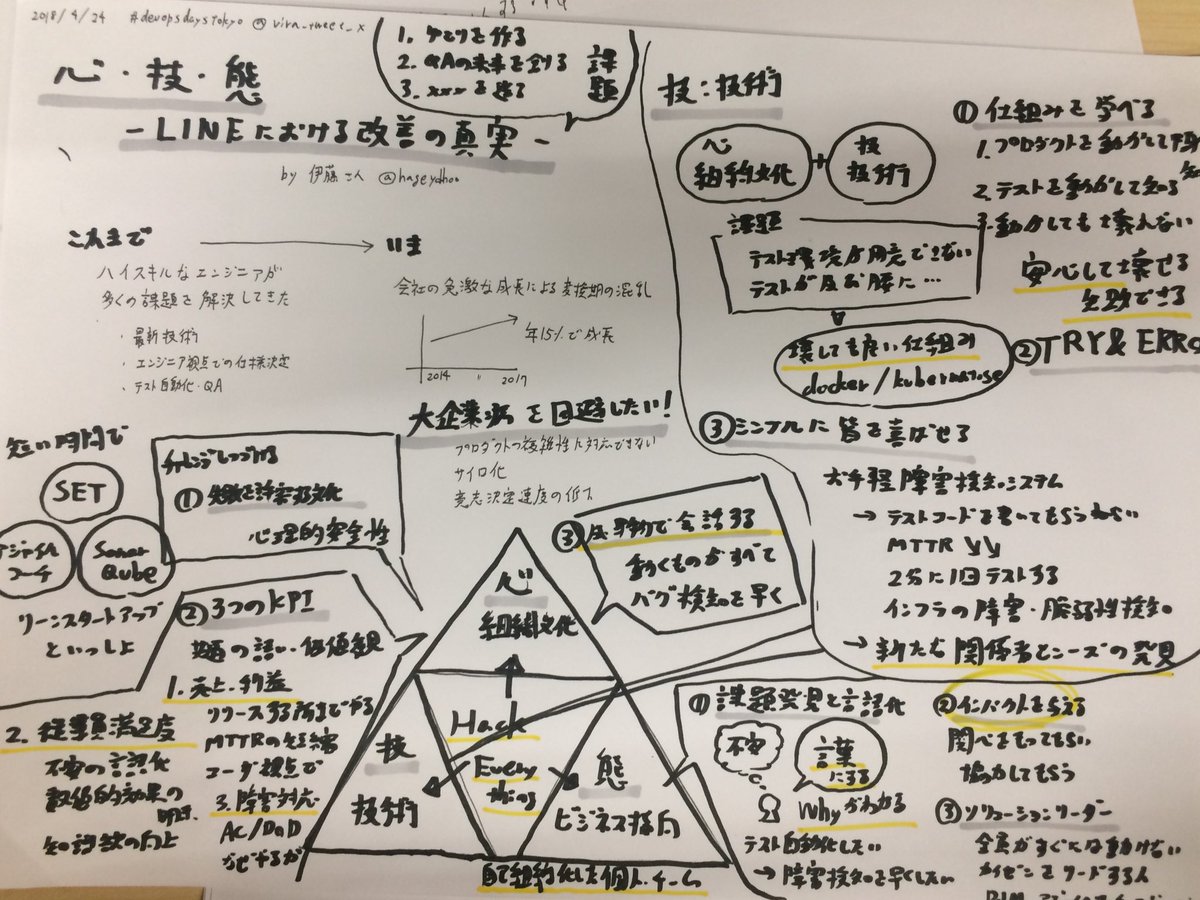 2018/4/24 #devopsdaystokyo @ vira_tweet_x
心・技・態
-LINEにおける改善の真実-
by 伊藤さん @haseyahoo
1. ゆとりを作る
2. QAの未来を創る
3. xxxを造る
課題
これまで
いま
ハイスキルなエンジニアが
多くの課題を解決してきた
・最新技術
・エンジニア視点での仕様決定
・テスト自動化・QA
会社の急激な成長による変換期の混乱
年15%で成長
2014 2017
大企業病を回避したい!
プロダクトの複雑性に対応できない
サイロ化
意志決定速度の低下
短い時間で
SET
アジャイル
コーチ
Sonar
Qube
リーンスタートアップ
といっしょ
チャレンジしつづける
①失敗を許容する文化
心理的安全性
②3つのKPI
共通の語い・価値観
1. 売上・利益
リリースする所までやる
MTTRの短縮
ユーザ視点で
2. 従業員満足度
不安の言語化
数値的効果の
知識欲の向上
3. 障害対応
AC/DoD
なぜするか
③で会話する
動くものがすべて
バグ検知を早く
心
組織文化
技
技術
Hack
Every
thing
態
ビジネス指向
自己組織化した個人・チーム
技:技術
心
組織文化
+
技
技術
課題
テスト環境が用意できない
テストが及び腰に…
壊しても良い仕組み
docker/kubernatese
①仕組みを学べる
1. プロダクトを動かして中身
2. テストを動かして知る
3. 動かしても壊れない
安心して壊せる
失敗できる
②TRY & ERRO
③シンプルに皆を喜ばせる
お手軽障害検知システム
→テストコードを書いてもらうねらい
MTTR ↘↘
2分に1回テストする
インフラの障害・脆弱性検知
→新たな関係者とニーズの発見
①課題発見と言語化
不安
言葉
にする
Whyがわかる
テスト自動化したい
→障害検知を早くしたい
②インパクトを与える
関心をもってもらい
協力してもらう
③ソリューションリーダー
全員がすぐには動けない
カイゼンをリードする人